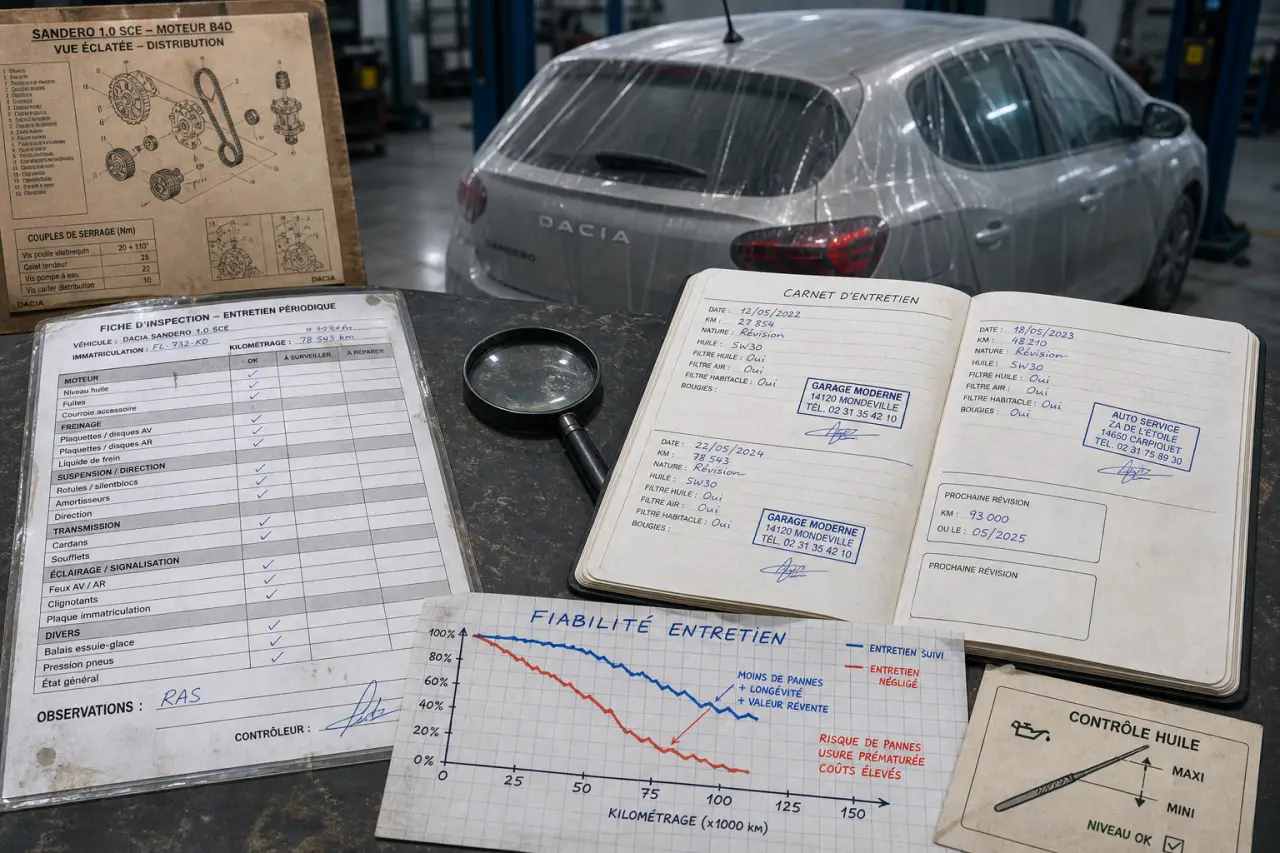 SANDERO 1.0 SCE – MOTEUR B4D
VUE ÉCLATÉE – DISTRIBUTION
COUPLES DE SERRAGE (Nm)
Vis poulie vilebrequin 20 + 110°
Galet tendeur 25
Vis pompe à eau 22
Vis carter distribution 10
DACIA
DACIA
DACIA
SANDERO
FICHE D'INSPECTION – ENTRETIEN PÉRIODIQUE
VÉHICULE : DACIA SANDERO 1.0 SCE
IMMATRICULATION : FL-732-KD
KILOMÉTRAGE : 78 543 km
OK À SURVEILLER À RÉPARER
MOTEUR
Niveau huile ✓
Fuites ✓
Courroie accessoire ✓
FREINAGE
Plaquettes / disques AV ✓
Plaquettes / disques AR ✓
Liquide de frein ✓
SUSPENSION / DIRECTION
Rotules / silentblocs ✓
Amortisseurs ✓
Direction ✓
TRANSMISSION
Cardans ✓
Soufflets ✓
ÉCLAIRAGE / SIGNALISATION
Feux AV / AR ✓
Clignotants ✓
Plaque immatriculation ✓
DIVERS
Balais essuie-glace ✓
Pression pneus ✓
État général ✓
OBSERVATIONS : RAS
CONTRÔLEUR :
CARNET D'ENTRETIEN
DATE : 12/05/2022
KM : 27 854
NATURE : Révision
HUILE : 5W30
FILTRE HUILE : Oui
FILTRE AIR : Oui
FILTRE HABITACLE : Oui
BOUGIES :
GARAGE MODERNE
14120 MONDEVILLE
TÉL. 02 31 35 42 10
DATE : 22/05/2024
KM : 78 543
NATURE : Révision
HUILE : 5W30
FILTRE HUILE : Oui
FILTRE AIR : Oui
FILTRE HABITACLE : Oui
BOUGIES :
GARAGE MODERNE
14120 MONDEVILLE
TÉL. 02 31 35 42 10
DATE : 18/05/2023
KM : 48 210
NATURE : Révision
HUILE : 5W30
FILTRE HUILE : Oui
FILTRE AIR : Oui
FILTRE HABITACLE : Oui
BOUGIES : Oui
AUTO SERVICE
ZA DE L'ÉTOILE
14650 CARPIQUET
TÉL. 02 31 75 89 30
PROCHAINE RÉVISION
KM : 93 000
OU LE : 05/2025
PROCHAINE RÉVISION
FIABILITÉ ENTRETIEN
100%
80%
60%
40%
20%
0%
0 25 50 75 100 125 150
KILOMÉTRAGE (x1000 km)
ENTRETIEN SUIVI
ENTRETIEN
NÉGLIGÉ
MOINS DE PANNES
+ LONGÉVITÉ
+ VALEUR REVENTE
RISQUE DE PANNES
USURE PRÉMATURÉE
COÛTS ÉLEVÉS
CONTRÔLE HUILE
MAXI
MINI
NIVEAU OK ✓